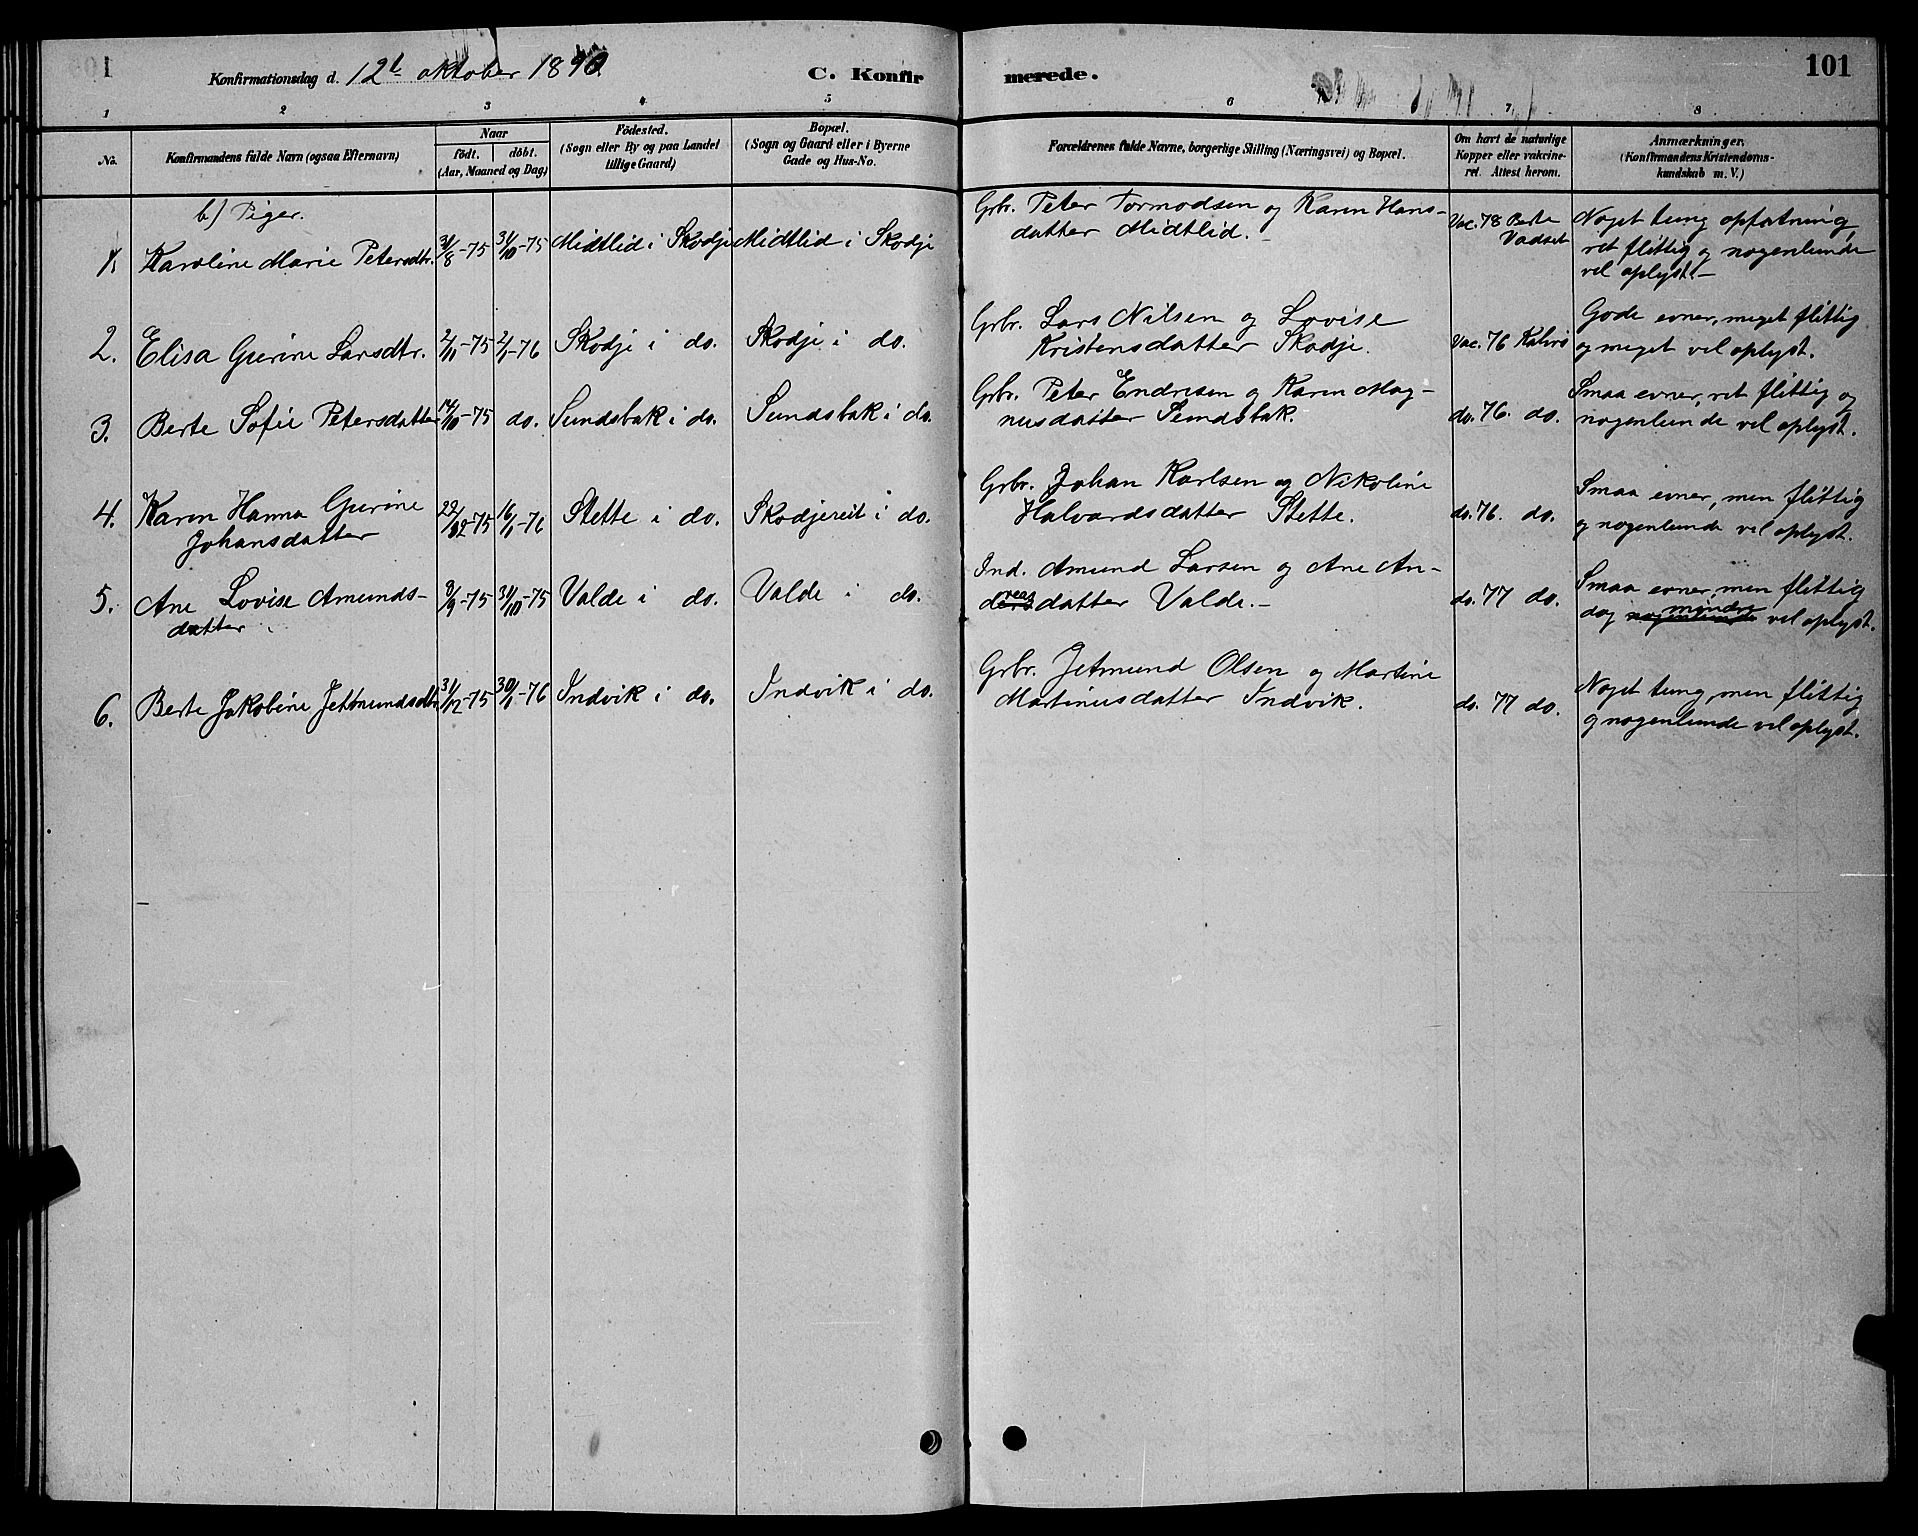 Konfirmationsdag d. 12t oktober 1890 C. Konfir merede. 101
1 2 3 4 5 6 7 8
No. Konfirmandens fulde Navn (ogsaa Efternavn)
Naar
födt. döbt.
(Aar, Maaned og Dag)
Födested.
(Sogn eller By og paa Landet
tillige Gaard)
Bopæl.
(Sogn og Gaard eller i Byerne
Gade og Hus-No.
Forældrenes fulde Navne, borgerlige Stilling (Næringsvei) og Bopæl.
Om havt de naturlige
Kopper eller vakcine-
ret. Attest herom.
Anmærkninger.
(Konfirmandens Kristendoms-
kundskab m. V.)
b) Piger.
1. Karoline Marie Petersdtr. 31/8-75 31/10-75 Midtlid i Skodje Midtlid i Skodje
Grbr. Peter Tormodsen og Karen Hans-
datter Midtlid.-
Vac. 78 Berte
Vadset
Noget tung opfatning,
ret flittig og nogenlunde
vel oplyst.-
2. Elisa Gurine Larsdtr. 2/11-75 2/1-76 Skodje i do. Skodje i do.
Grbr. Lars Nilsen og Lovise
Kristensdatter Skodje.
Vac. 76 Kalvø
Gode evner, meget flittig
og meget vel oplyst.
3. Berte Sofie Petersdatter 14/10-75 do. Sundsbak i do. Sundsbak i do.
Grbr. Peter Endresen og Karen Mag-
nusdatter Sundsbak.
do. 76. do.
Smaa evner, ret flittig og
nogenlunde vel oplyst.
4. Karen Hanna Gurine
Johansdatter
22/12-75 16/1-76 Stette i do. Skodjereit i do.
Grbr. Johan Karlsen og Nikoline
Halvardsdatter Stette.
do. 76. do.
Smaa evner, men flittig
og nogenlunde vel oplyst.
5. Ane Lovise Amunds-
datter
9/9-75 31/10-75 Valde i do. Valde i do.
Ind. Amund Larsen og Ane An-
dreasdatter Valde.-
do. 77 do.
Smaa evner, men flittig
dog nogenlunde mindre vel oplyst.
6. Berte Jakobine Jetmundsdtr. 31/12-75 30/1-76 Indvik i do. Indvik i do.
Grbr. Jetmund Olsen og Martine
Martinusdatter Indvik.
do. 77 do.
Noget tung, men flittig
og nogenlunde vel oplyst.